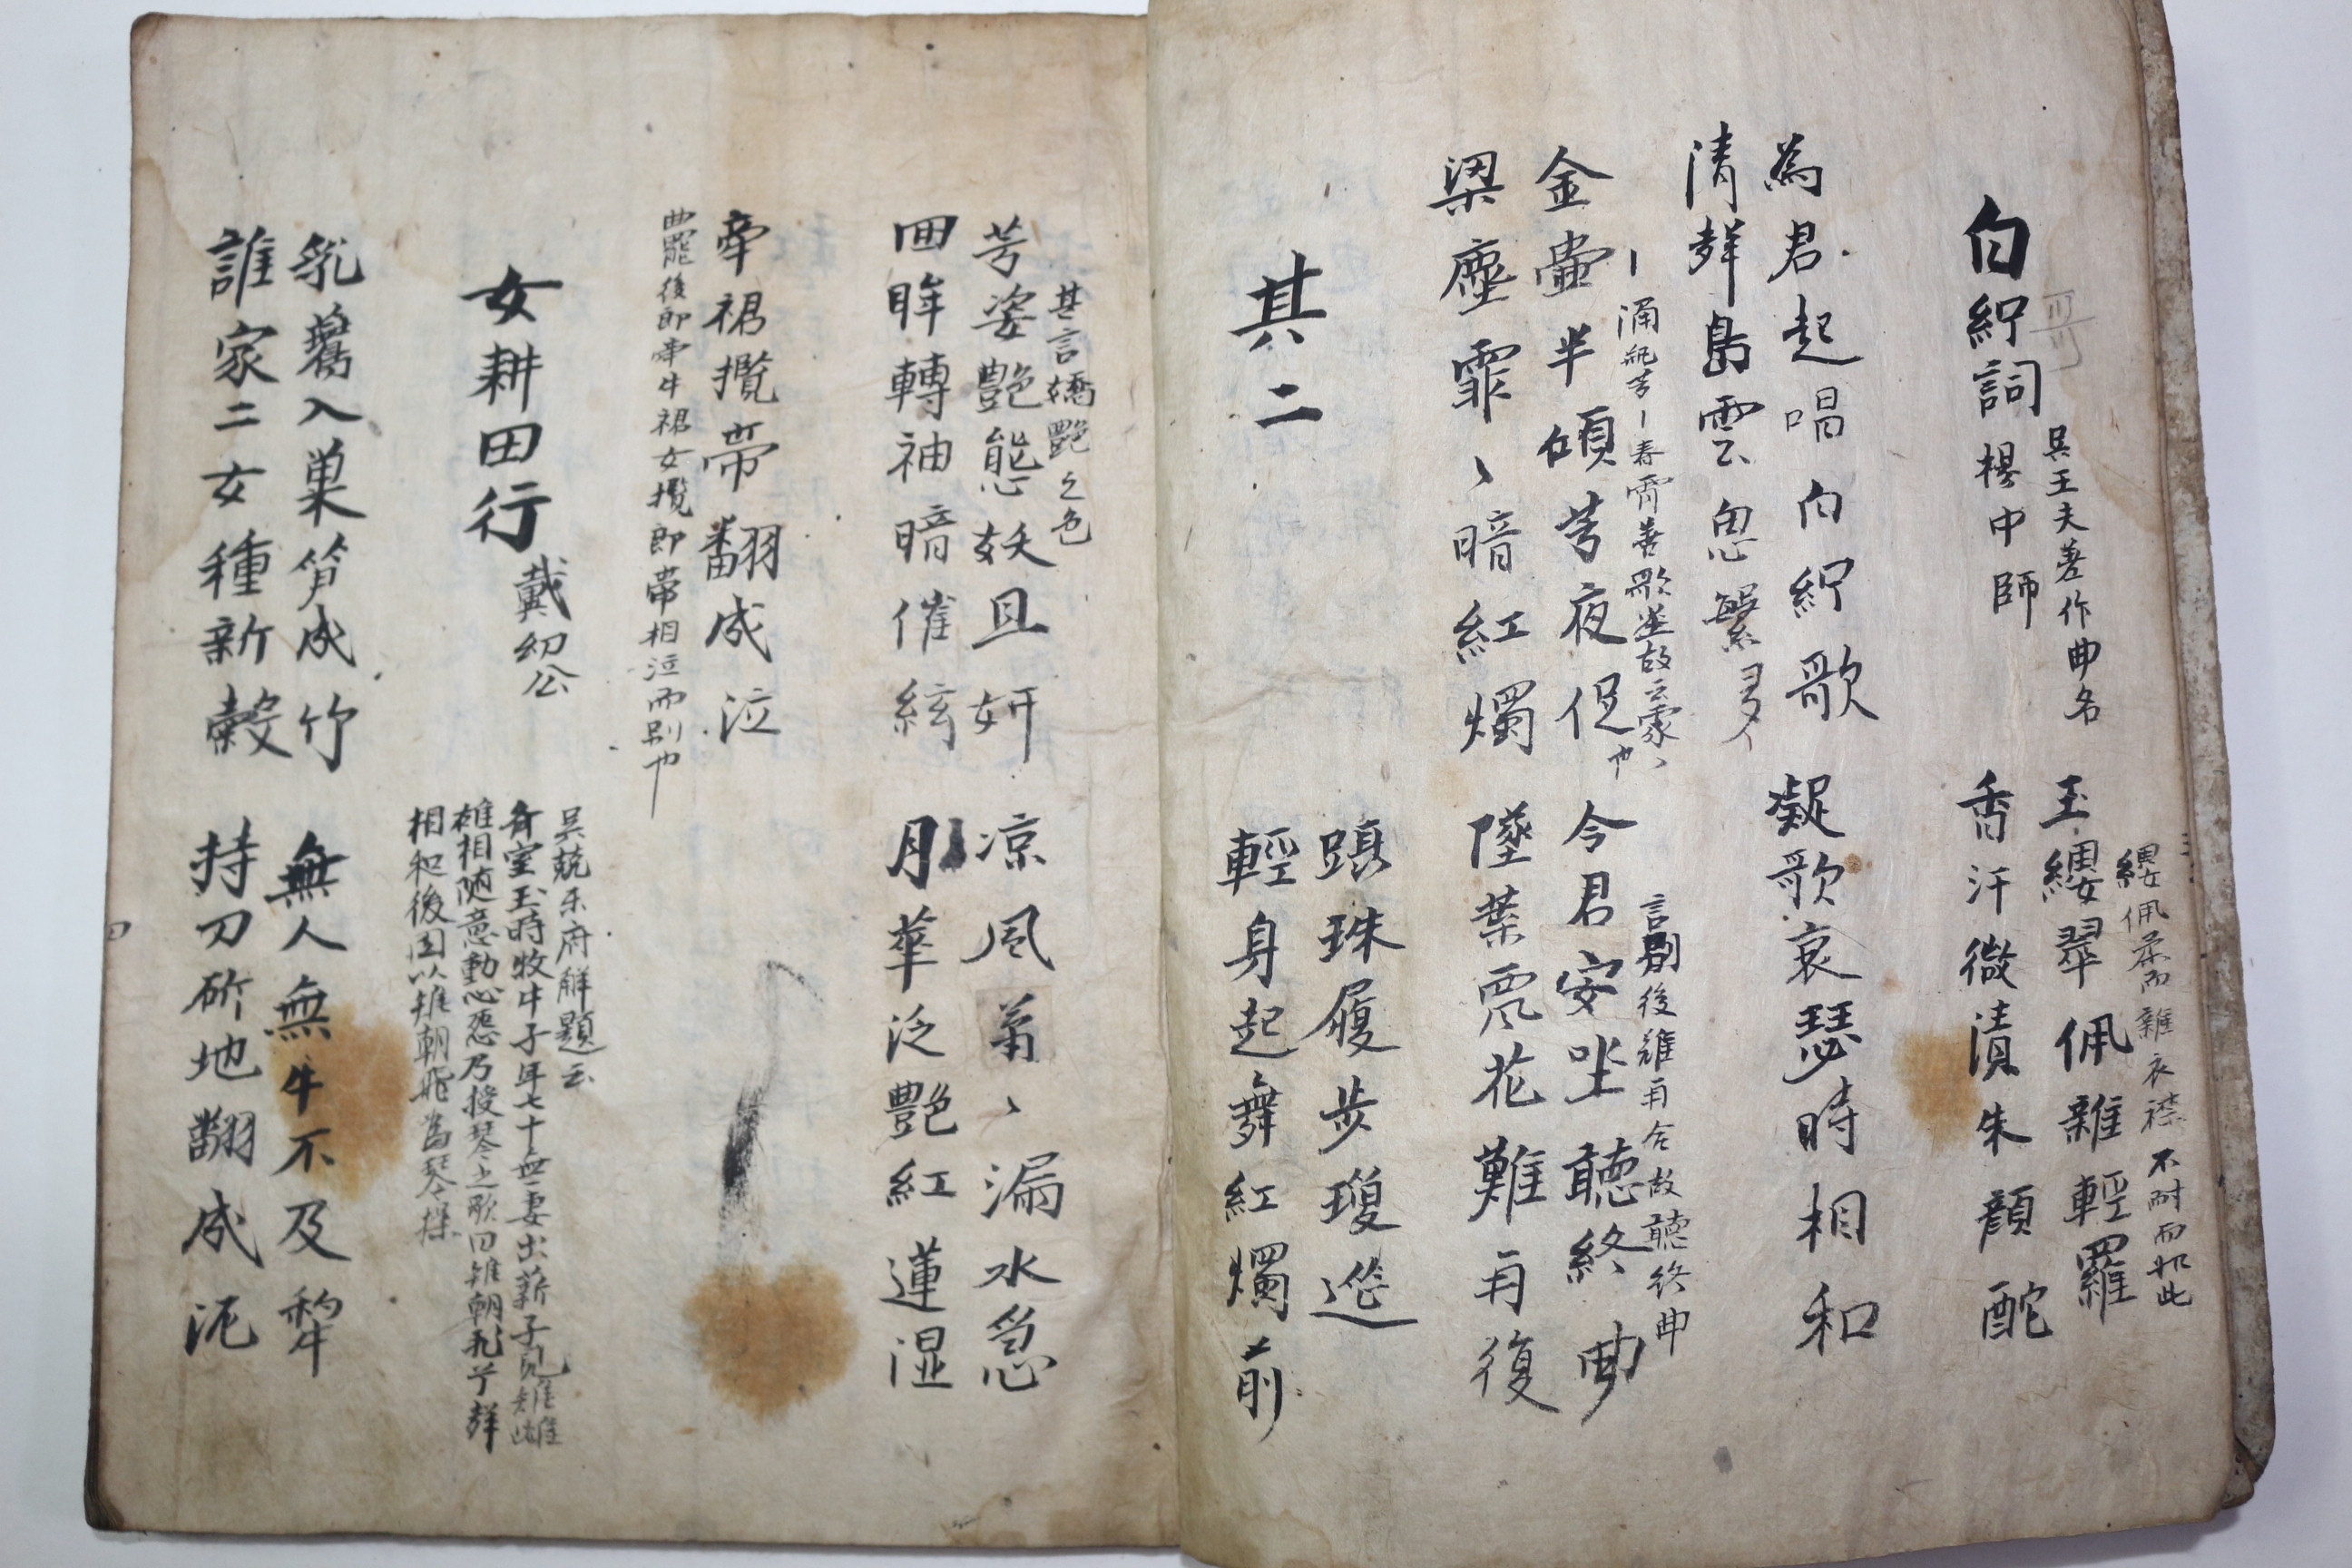 白紵詞 楊中師
吳王夫差作曲名
玉纓翠佩雜輕羅
香汗微漬朱顏酡
為君起唱白紵歌
清聲島雲思繁多
凝歌哀瑟時相和
金壷半傾芳夜促
梁塵霏〻暗紅燭
言別後難再合故聽終曲
今君安坐聽終曲
墜葉飄花難再復
其二
躡珠履步瓊筵
輕身起舞紅燭前
其言嬌艶之色
芳姿艶態妖且妍
回眸轉袖暗催絃
凉風蕭〻漏水急
月華泛艶紅蓮湿
牽裙攬帶翻成泣
曲罷後郎牽牛裙女攬郎帶相泣而別也
女耕田行 戴幼公
吳兢乐府解題云
有室玉時牧牛子年七十無妻出薪子見雉雌
雄相随意動心怨乃援琴之歌曰雉朝飛兮群
相和後因以雉朝飛為琴操
乳鷰入巢笋成竹
誰家二女種新穀
無人無牛不及犂
持刀斫地翻成泥